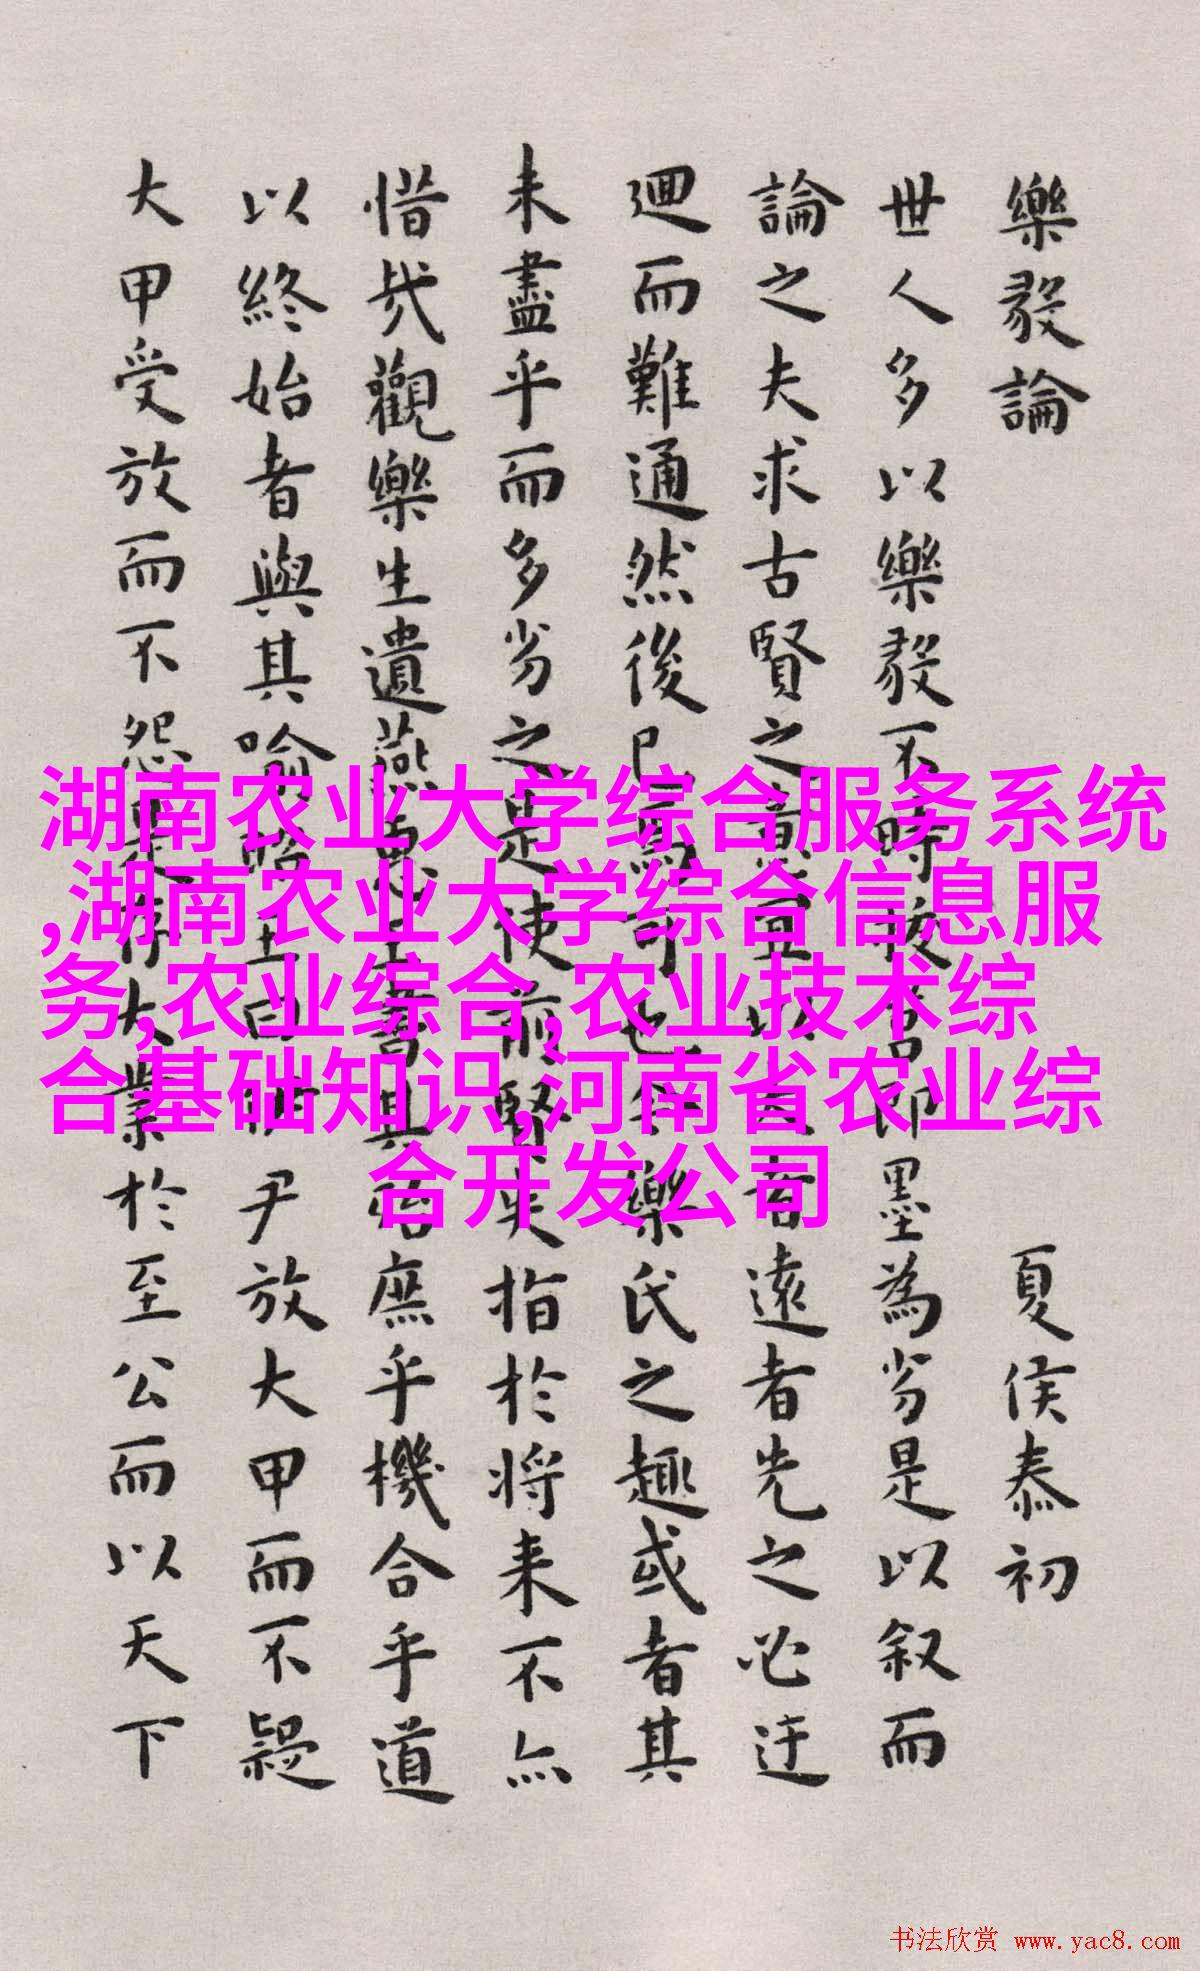 樂毅論 夏侯泰初
世人多以樂毅不時拔莒即墨為劣是以叙而
論之夫求古賢之意宜以大者遠者先之必迂
迴而難通然後已焉可也今樂氏之趣或者其
未盡乎而多劣之是使前賢失指於將來不亦
惜哉觀樂生遺燕惠王書其殆庶乎機合乎道
以終始者與其喻昭王曰伊尹放大甲而不疑
大甲受放而不怨是存大業於至公而以天下
湖南农业大学综合服务系统
,湖南农业大学综合信息服
务,农业综合,农业技术综
合基础知识,河南省农业综
合开发公司
书法欣赏 www.yac8.com